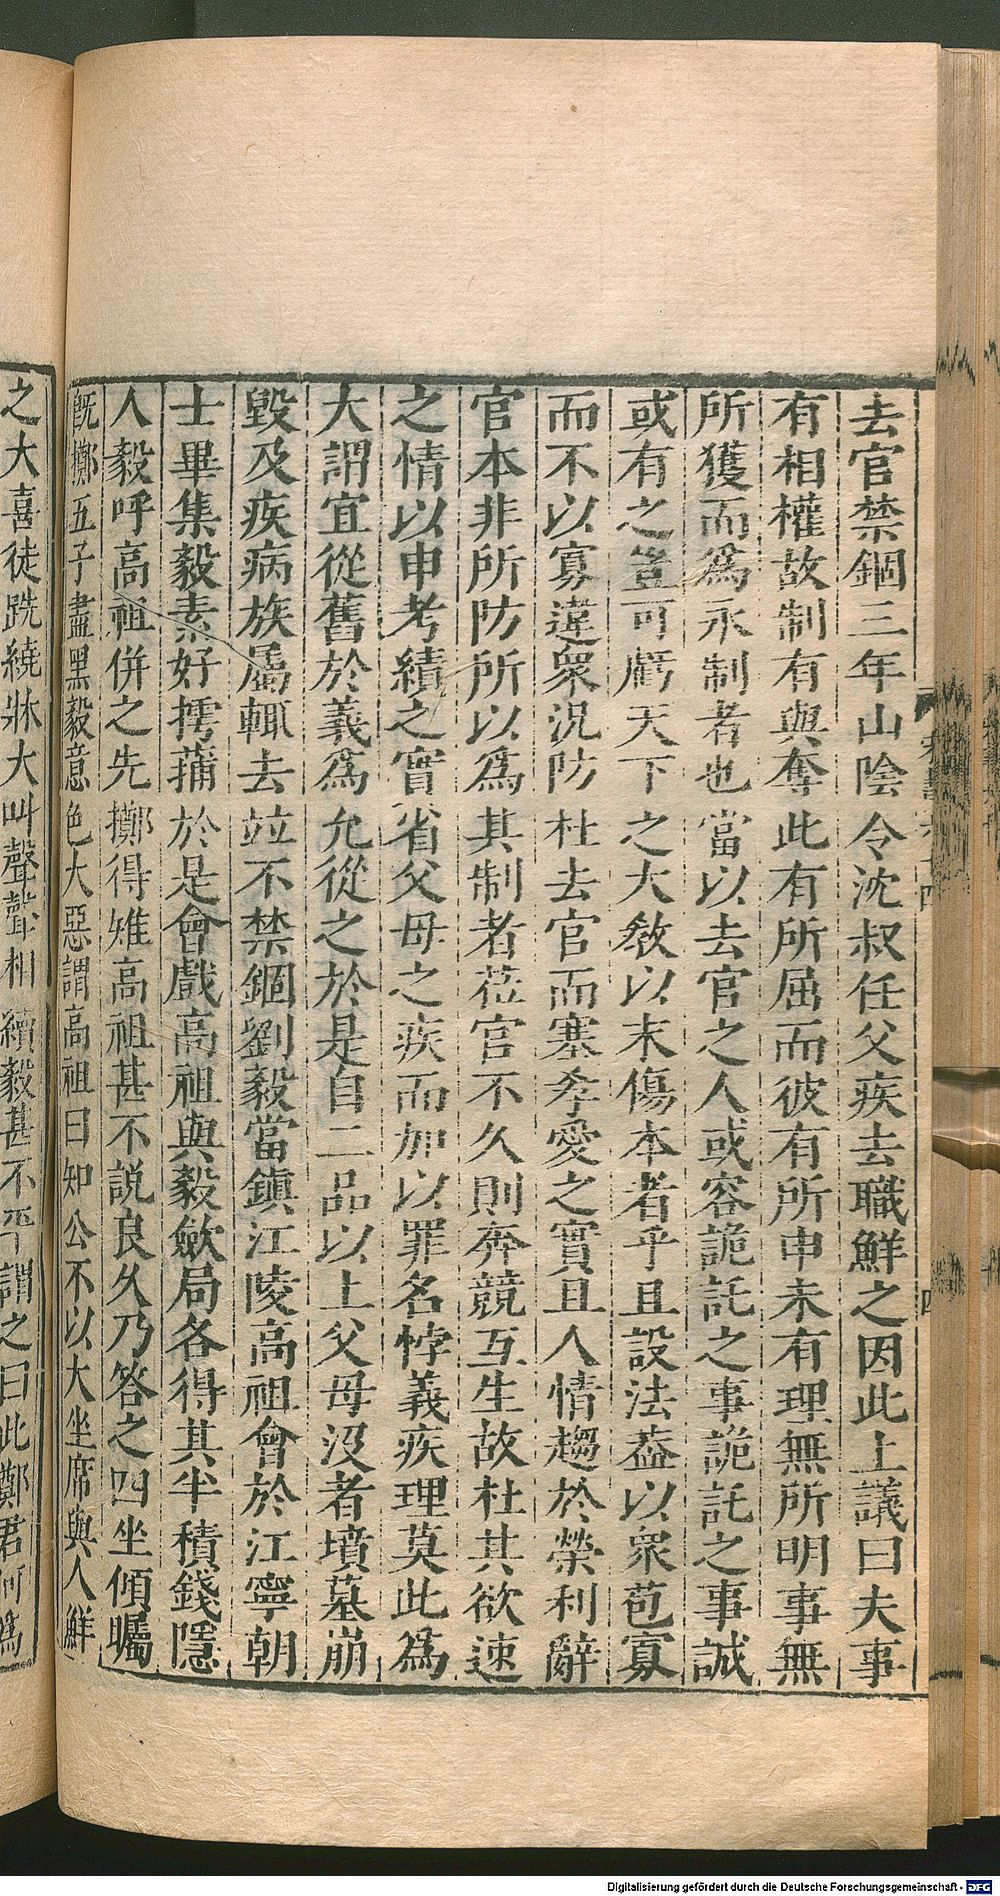 去官禁錮三年山陰令沈叔任父疾去職鮮之因此上議曰夫事
有相權故制有與奪此有所屈而彼有所申未有理無所明事無
所獲而爲永制者也當以去官之人或容詭託之事詭託之事誠
或有之豈可虧天下之大敎以末傷本者乎且設法葢以衆苞寡
而不以寡違衆況防杜去官而塞孝愛之實且人情趨於榮利辭
官本非所防所以爲其制者莅官不久則奔競互生故杜其欲速
之情以申考績之實省父母之疾而加以罪名悖義疾理莫此爲
大謂宜從舊於義爲允從之於是自二品以上父母没者墳墓崩
毀及疾病族屬輒去竝不禁錮劉毅當鎮江陵高祖會於江寧朝
士畢集毅素好摴蒱於是會戲高祖與毅斂局各得其半積錢隱
人毅呼高祖併之先擲得雉高祖甚不説良久乃答之四坐傾矚
旣擲五子盡黑毅意色大惡謂高祖曰知公不以大坐席與人鮮
之大喜徒跣繞牀大叫聲聲相續毅甚不平謂之曰此鄭君何爲
Digitalisierung gefördert durch die Deutsche Forschungsgemeinschaft - DFG